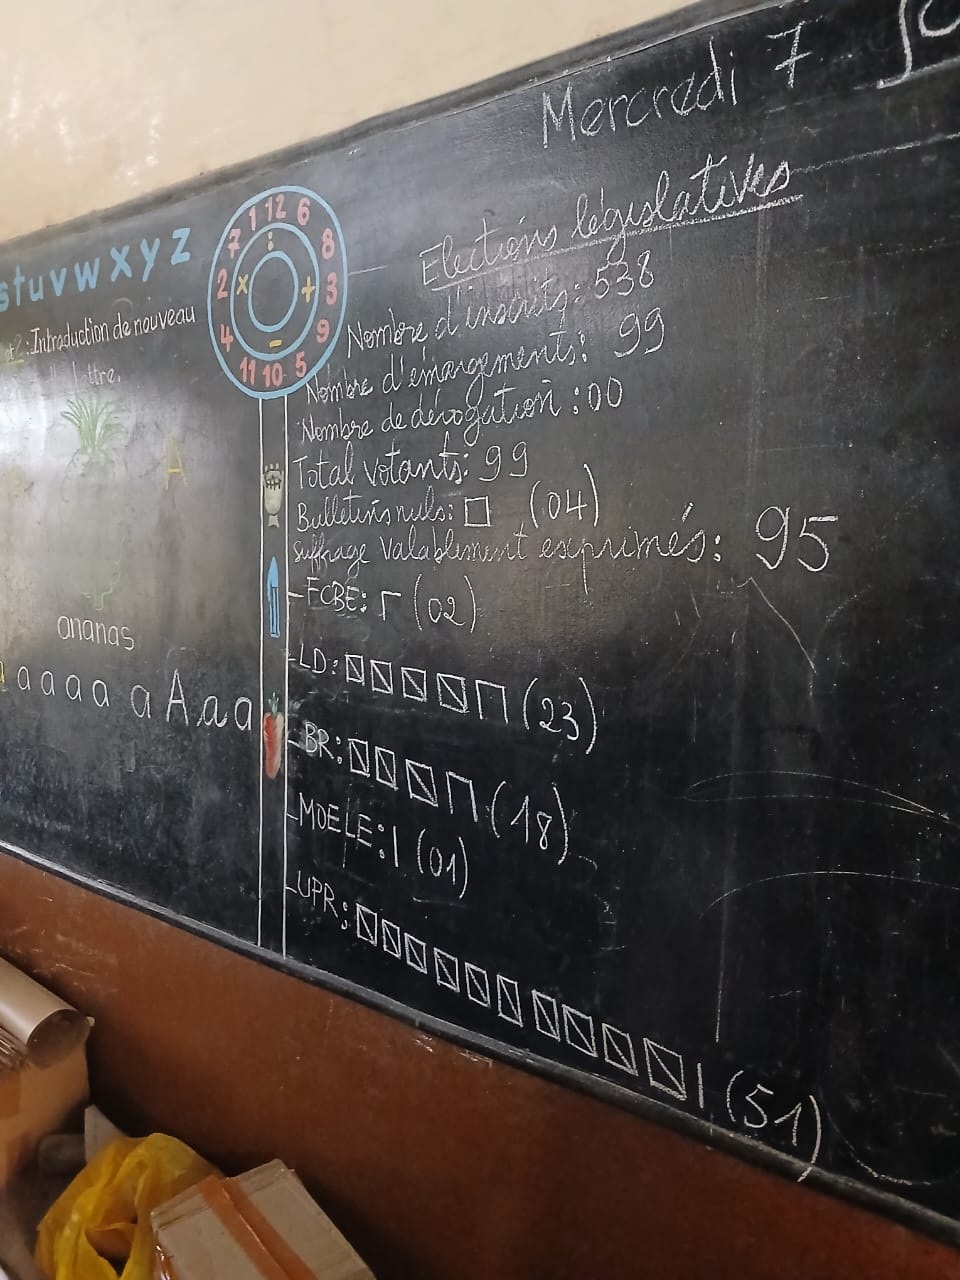 Mercredi 7
Elections législatives
Nombre d'inscrits: 538
Nombre d'émargements: 99
Nombre de dérogation: 00
Total votants: 99
Bulletins nuls: (04)
suffrage valablement exprimés: 95
-FCBE: (02)
-LD: (23)
-BR: (18)
-MOELE: (01)
-UPR: (51)
s t u v w x y z
: Introduction de nouveau
lettre.
A
ananas
a a a a a a A a a
1 12 6
7 : 8
2 x + 3
4 - 9
11 10 5